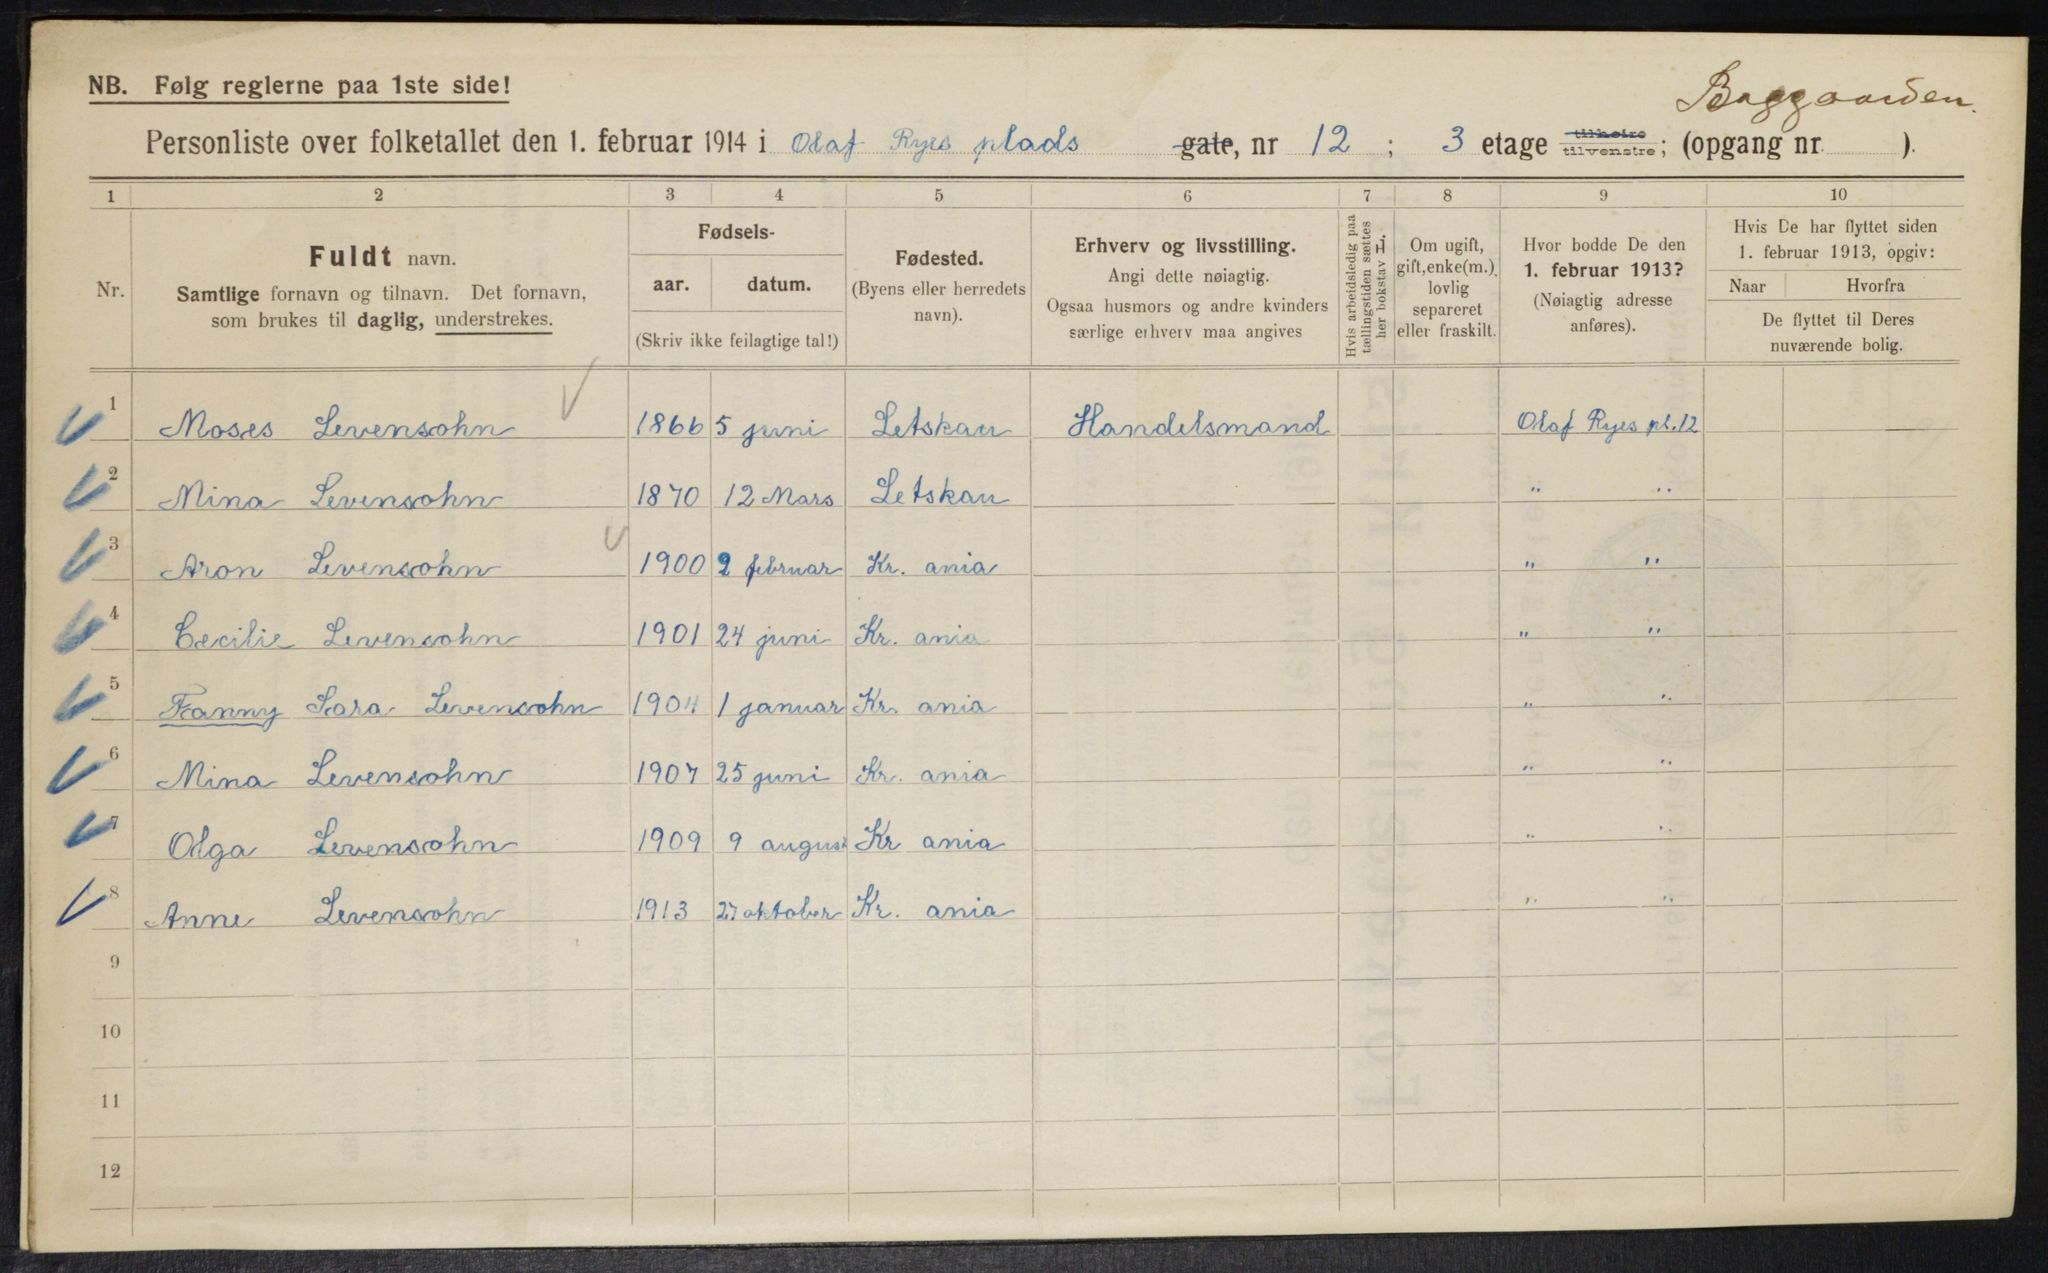 NB. Følg reglerne paa 1ste side!
Baggaarden.
Personliste over folketallet den 1. februar 1914 i Olaf Ryes plads gate, nr 12 ; 3 etage tilhøire tilvenstre; (opgang nr. ).
1 2 3 4 5 6 7 8 9 10
Nr.
Fuldt navn.
Samtlige fornavn og tilnavn. Det fornavn,
som brukes til daglig, understrekes.
Fødsels-
aar. datum.
(Skriv ikke feilagtige tal!)
Fødested.
(Byens eller herredets
navn).
Erhverv og livsstilling.
Angi dette nøiagtig.
Ogsaa husmors og andre kvinders
særlige erhverv maa angives
Hvis arbeidsledig paa
tællingstiden sættes
her bokstav L.
Om ugift,
gift, enke(m.),
lovlig
separeret
eller fraskilt.
Hvor bodde De den
1. februar 1913?
(Nøiagtig adresse
anføres).
Hvis De har flyttet siden
1. februar 1913, opgiv:
Naar Hvorfra
De flyttet til Deres
nuværende bolig.
1 Moses Levensohn 1866 5 juni Letskau Handelsmand Olaf Ryes pl. 12
2 Mina Levensohn 1870 12 Mars Letskau " "
3 Aron Levensohn 1900 2 februar Kr. ania " "
4 Cecilie Levensohn 1901 24 juni Kr. ania " "
5 Fanny Sara Levensohn 1904 1 januar Kr. ania " "
6 Mina Levensohn 1907 25 juni Kr. ania " "
7 Olga Levensohn 1909 9 august Kr ania " "
8 Anne Levensohn 1913 27 oktober Kr. ania " "
9
10
11
12